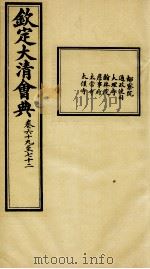 欽定大清會典
卷六十九至七十二
都察院
通政使司
大理寺
翰林院
詹事府
太常寺
太僕寺